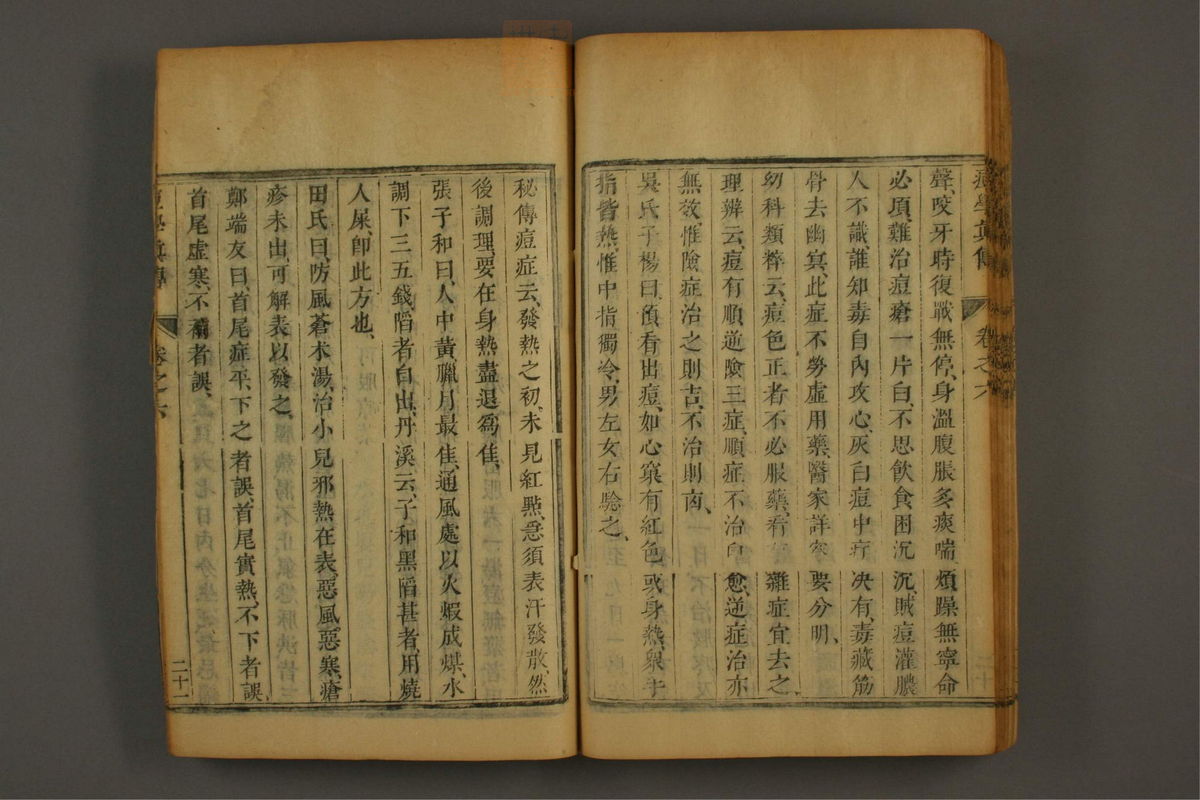 痘學真傳 卷之六 二十
聲、咬牙時復戰無停、身溫腹脹多痰喘、煩躁無寧命
必項、難治痘瘡一片白、不思飲食困沉沉、賊痘灌膿
人不識、誰知毒自內攻心、灰白痘中疔決有、毒藏筋
骨去幽冥、此症不勞虛用藥、醫家詳察要分明、
幼科類粹云、痘色正者不必服藥、看有雜症宜去之、
理辨云、痘有順逆險三症、順症不治自愈、逆症治亦
無效、惟險症治之則吉、不治則凶、
吳氏子楊曰、預看出痘、如心窠有紅色、或身熱、衆手
指皆熱、惟中指獨冷、男左女右驗之、
秘傳痘症云、發熱之初、未見紅點、急須表汗發散、然
後調理、要在身熱盡退爲佳、
張子和曰、人中黃臘月最佳、通風處以火煆成煤、水
調下三五錢、陷者自出、丹溪云、子和黑陷甚者、用燒
人屎、卽此方也、
田氏曰、防風蒼朮湯、治小兒邪熱在表、惡風、惡寒、瘡
疹未出、可解表以發之、
鄭端友曰、首尾症平、下之者誤、首尾實熱、不下者誤、
首尾虛寒、不補者誤、
痘學真傳 卷之六 二十一